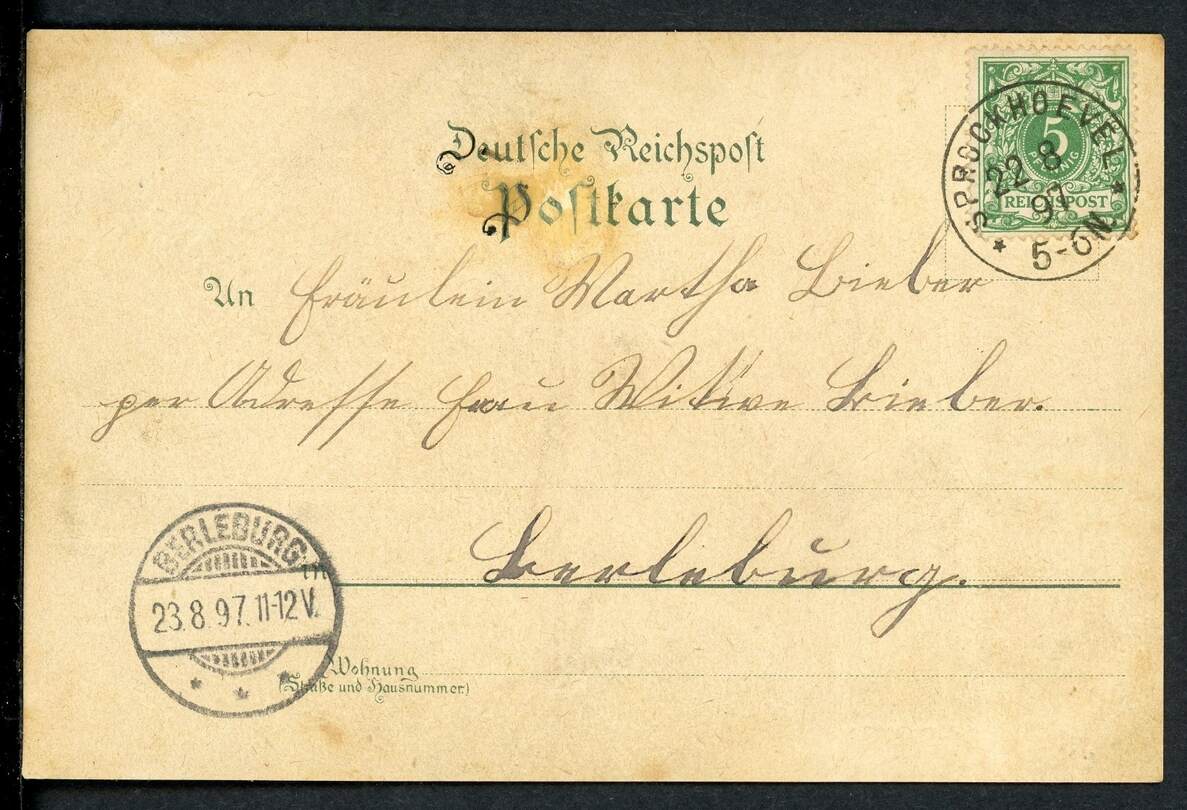 Deutsche Reichspost
Postkarte
5
PFENNIG
REICHSPOST
SPROCKHOEVEL
22 8
97
5-6N.
An Fräulein Martha Bieber
per Adresse Frau Witwe Bieber.
in Berleburg.
BERLEBURG
23.8.97.11-12V.
Wohnung
(Straße und Hausnummer)